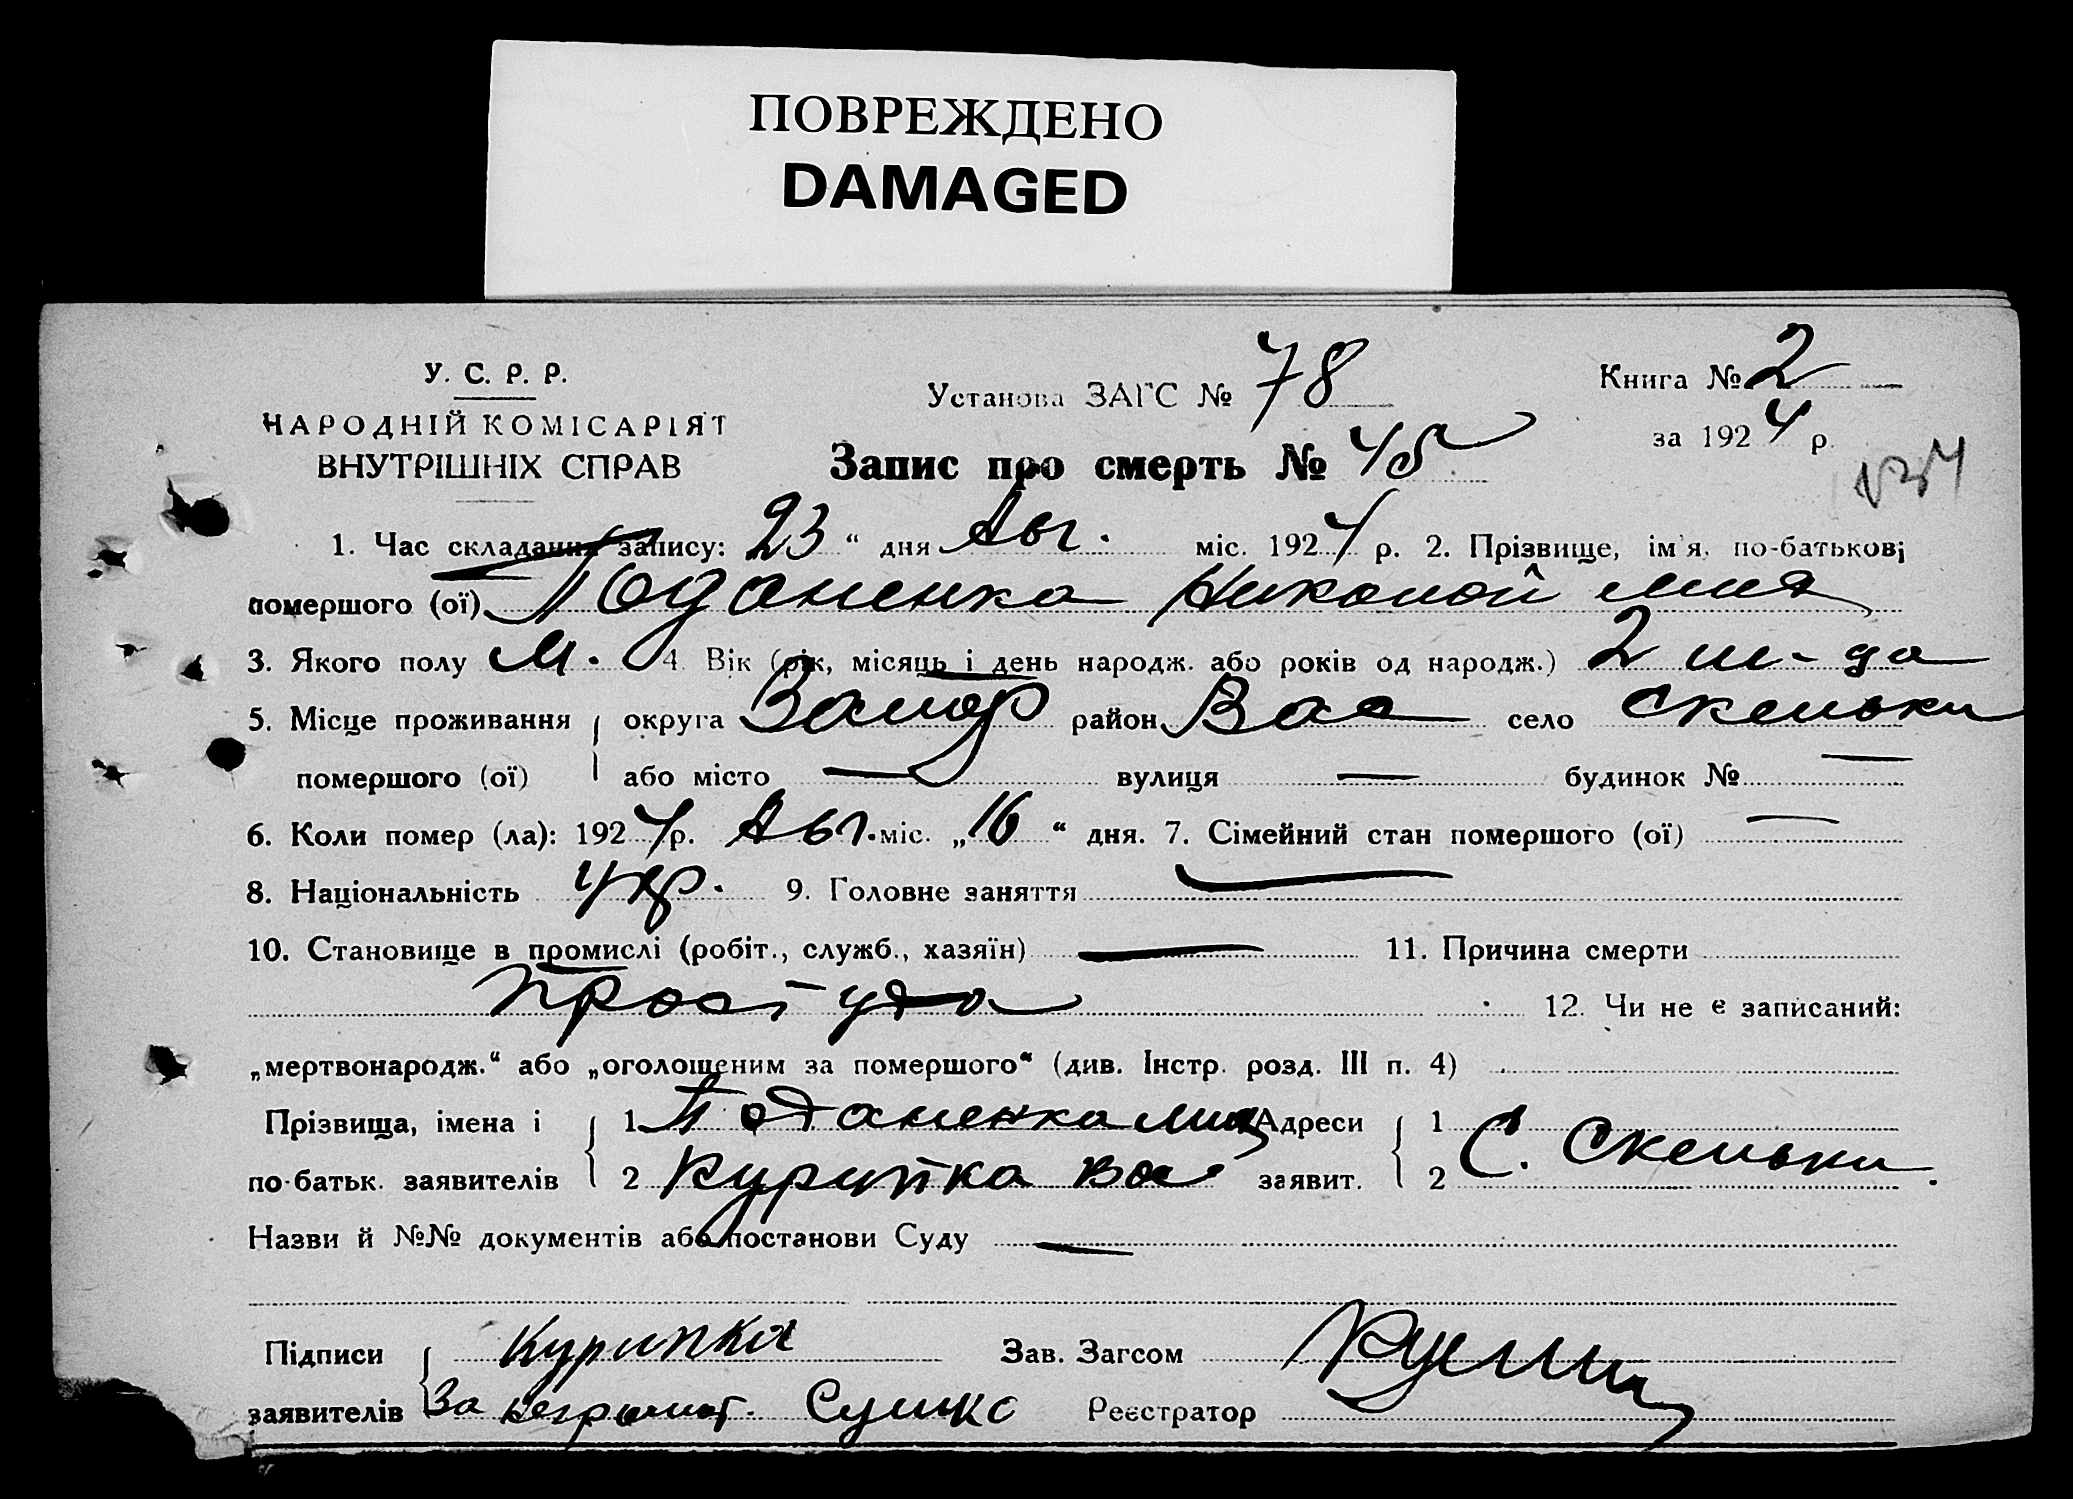 ПОВРЕЖДЕНО
DAMAGED
У. С. Р. Р.
НАРОДНІЙ КОМІСАРІЯТ
ВНУТРІШНІХ СПРАВ
Установа ЗАГС № 78
Книга № 2
за 1924 р.
Запис про смерть № 45
1. Час складання запису: 23 “ дня Авг. міс. 1924 р. 2. Прізвище, ім’я, по-батькові
помершого (ої) Поданенка Николой
3. Якого полу М. 4. Вік (рік, місяць і день народж. або років од народж.) 2
5. Місце проживання { округа Запор район Вас село Скельки
помершого (ої) або місто — вулиця — будинок № —
6. Коли помер (ла): 1924 р. Авг. міс. „16“ дня. 7. Сімейний стан помершого (ої) —
8. Національність укр. 9. Головне заняття —
10. Становище в промислі (робіт., служб., хазяїн) — 11. Причина смерти
простуда 12. Чи не є записаний:
„мертвонародж.“ або „оголошеним за помершого“ (див. Інстр. розд. III п. 4)
Прізвища, імена і { 1 Поданенка Адреси { 1
по-батьк. заявителів 2 Курипка Вас заявит. 2 С. Скельки.
Назви й №№ документів або постанови Суду —
Підписи { Курипка Зав. Загсом
заявителів За неграмот. Сушко Реєстратор